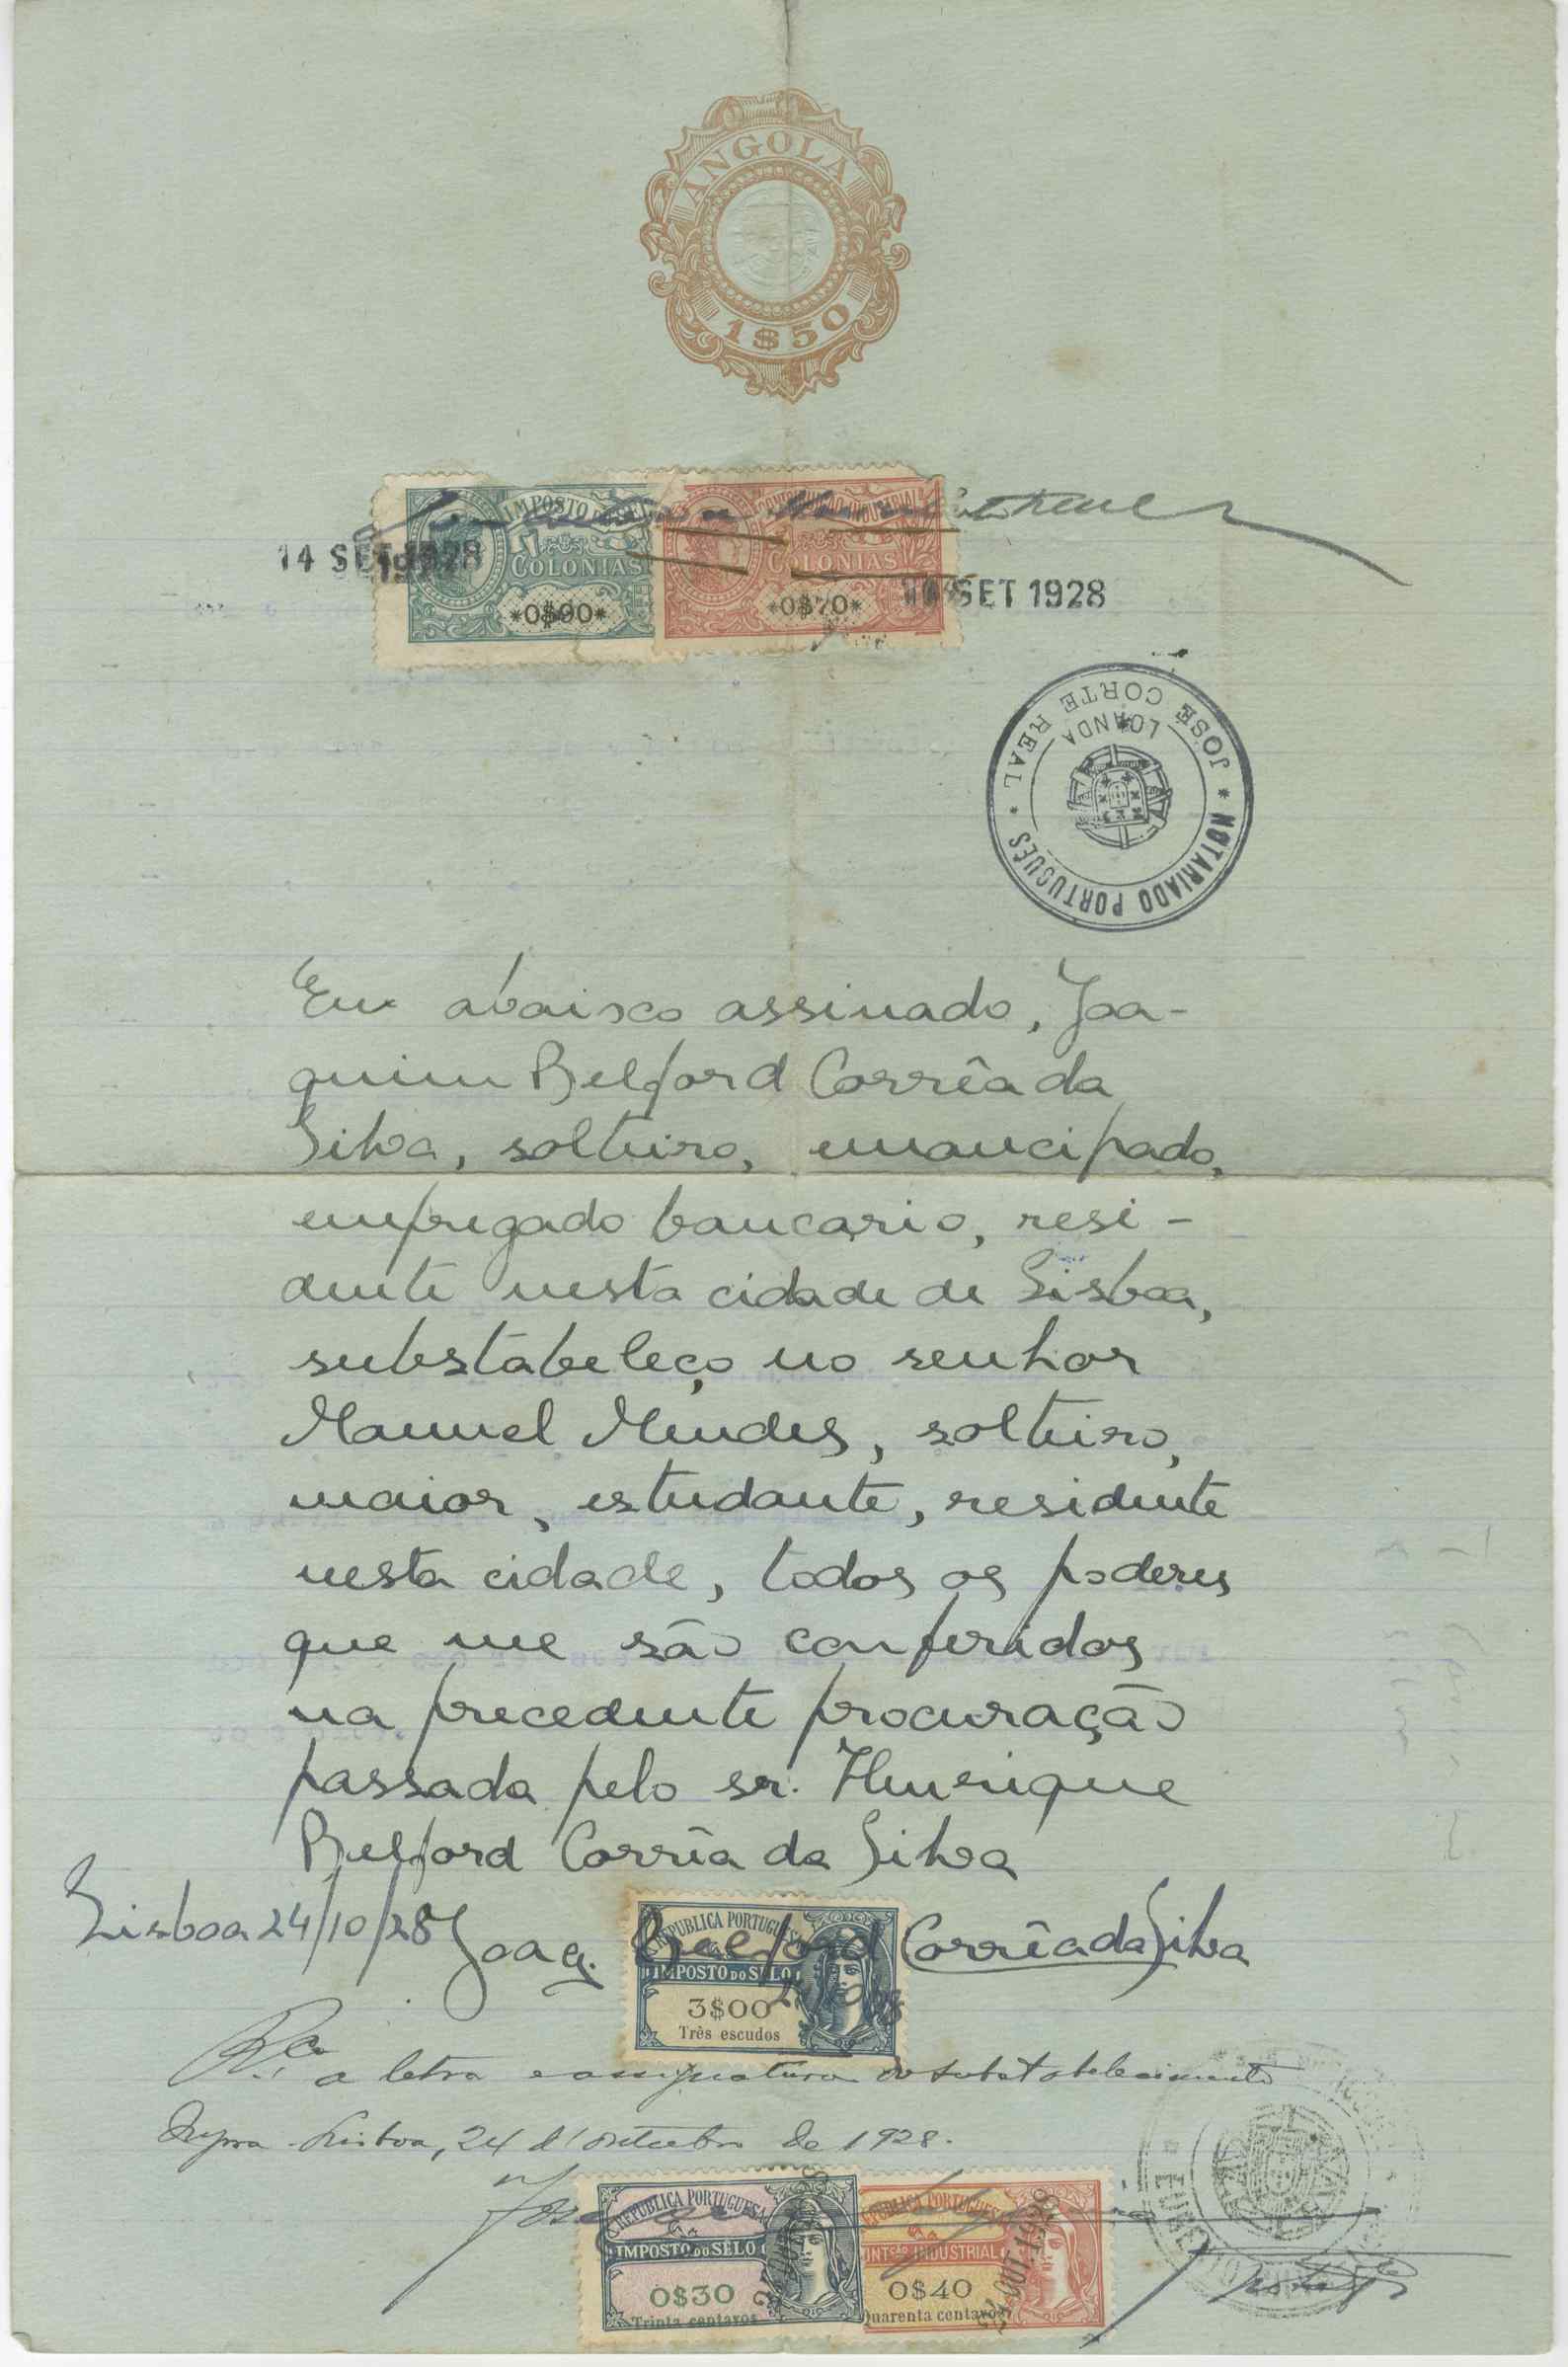 ANGOLA
1$50
IMPOSTO DO SELO
COLONIAS
*0$90*
CONTRIBUIÇÃO INDUSTRIAL
COLONIAS
*0$70*
14 SET 1928
14 SET 1928
* NOTARIADO PORTUGUÊS *
JOSÉ CORTE REAL
LOANDA
Eu abaixo assinado, Joa-
quim Belford Corrêa da
Silva, solteiro, emancipado,
empregado bancario, resi-
dente nesta cidade de Lisboa,
substabeleço no senhor
Manuel Mendes, solteiro,
maior, estudante, residente
nesta cidade, todos os poderes
que me são conferidos
na precedente procuração
passada pelo sr. Henrique
Belford Corrêa da Silva
Lisboa 24/10/28 Joaq. Belford Corrêa da Silva
REPUBLICA PORTUGUESA
IMPOSTO DO SÊLO
3$00
Três escudos
R.ço a letra e assignatura do substabelecimento
supra. Lisboa, 24 d'outubro de 1928.
REPUBLICA PORTUGUESA
IMPOSTO DO SÊLO
0$30
Trinta centavos
REPUBLICA PORTUGUESA
CONT.ÃO INDUSTRIAL
0$40
Quarenta centavos
24 OUT. 1928